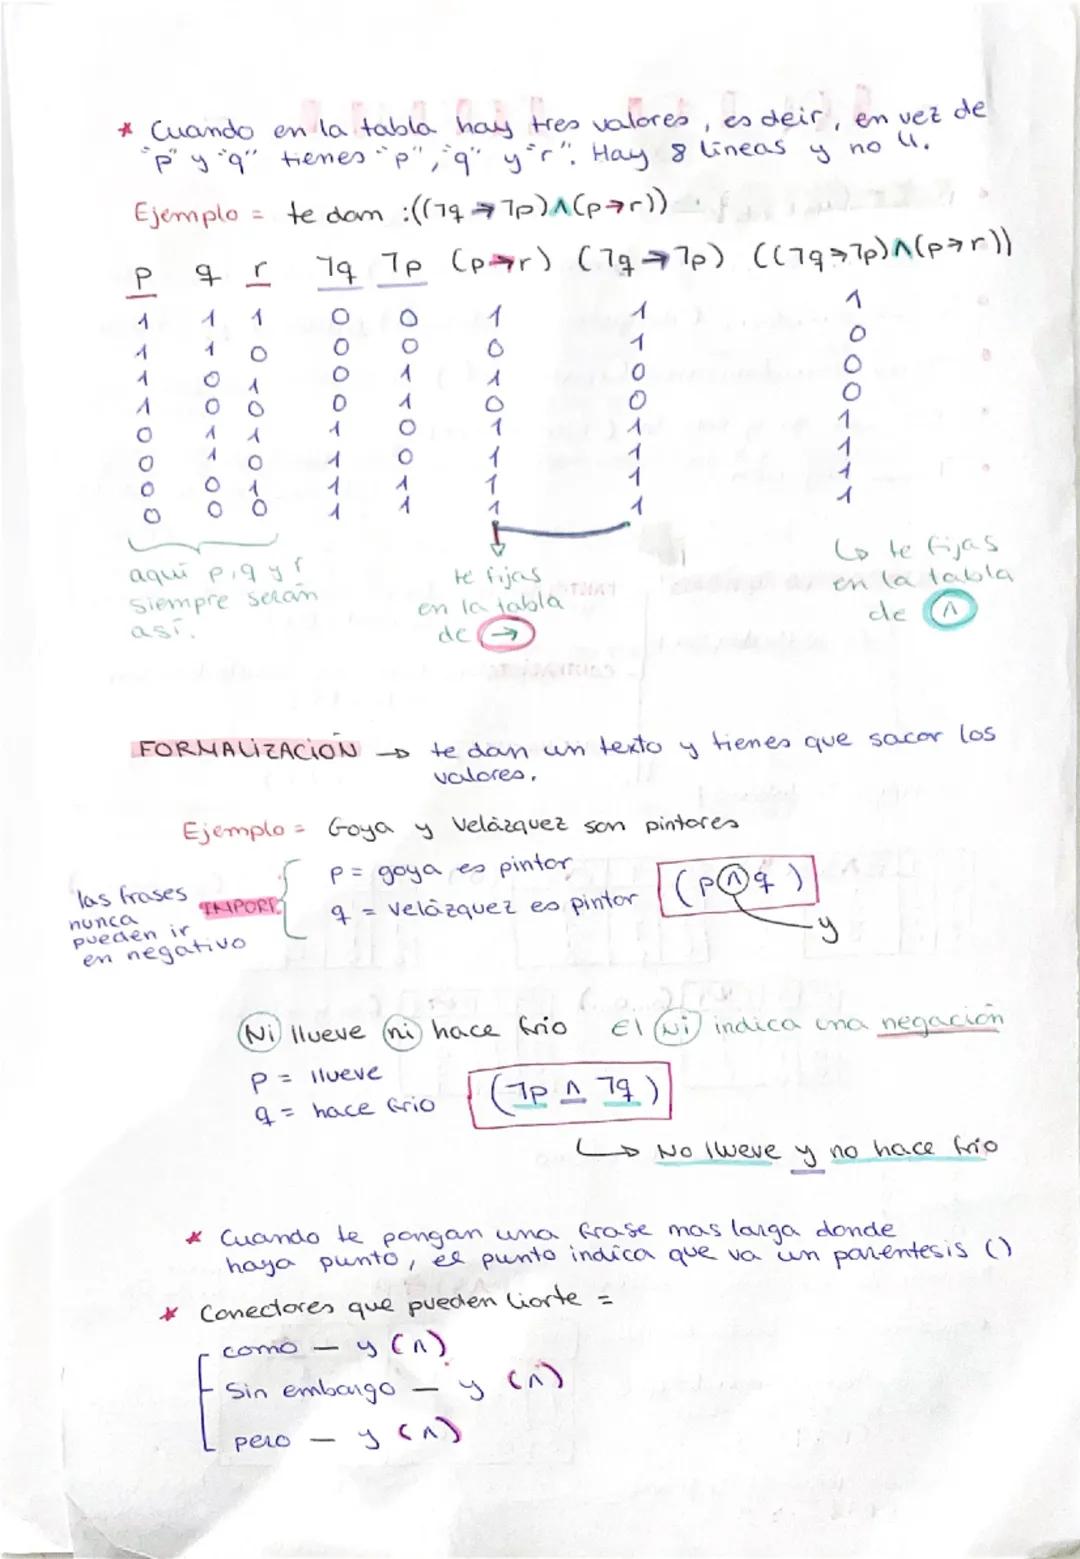 * Cuando en la tabla hay tres valores, es deir, en vez de
"p" y "q" tienes "p", "q" y "r". Hay 8 lineas y no 4.
Ejemplo = te dan :((¬q→¬p)∧(p→r))
p q r ¬q ¬p (p→r) (¬q→¬p) ((¬q→¬p)∧(p→r))
1 1 1 0 0 1 1 1
1 1 0 0 0 0 1 0
1 0 1 0 1 1 0 0
1 0 0 0 1 0 0 0
0 1 1 1 0 1 1 1
0 1 0 1 0 1 1 1
0 0 1 1 1 1 1 1
0 0 0 1 1 1 1 1
aquí p,q y r
siempre serán
así.
te fijas
en la tabla
de →
↳ te fijas
en la tabla
de ∧
FORMALIZACIÓN → te dan un texto y tienes que sacar los
valores.
Ejemplo = Goya y Velázquez son pintores
las frases
nunca
pueden ir
en negativo
IMPORT.
p = goya es pintor
q = Velázquez es pintor
(p∧q)
y
Ni llueve ni hace frio El Ni indica una negación
p = llueve
q = hace frio
(¬p ∧ ¬q)
↳ No llueve y no hace frio
* Cuando te pongan una frase mas larga donde
haya punto, el punto indica que va un paréntesis ()
* Conectores que pueden liarte =
como — y (∧)
Sin embargo — y (∧)
pero — y (∧)